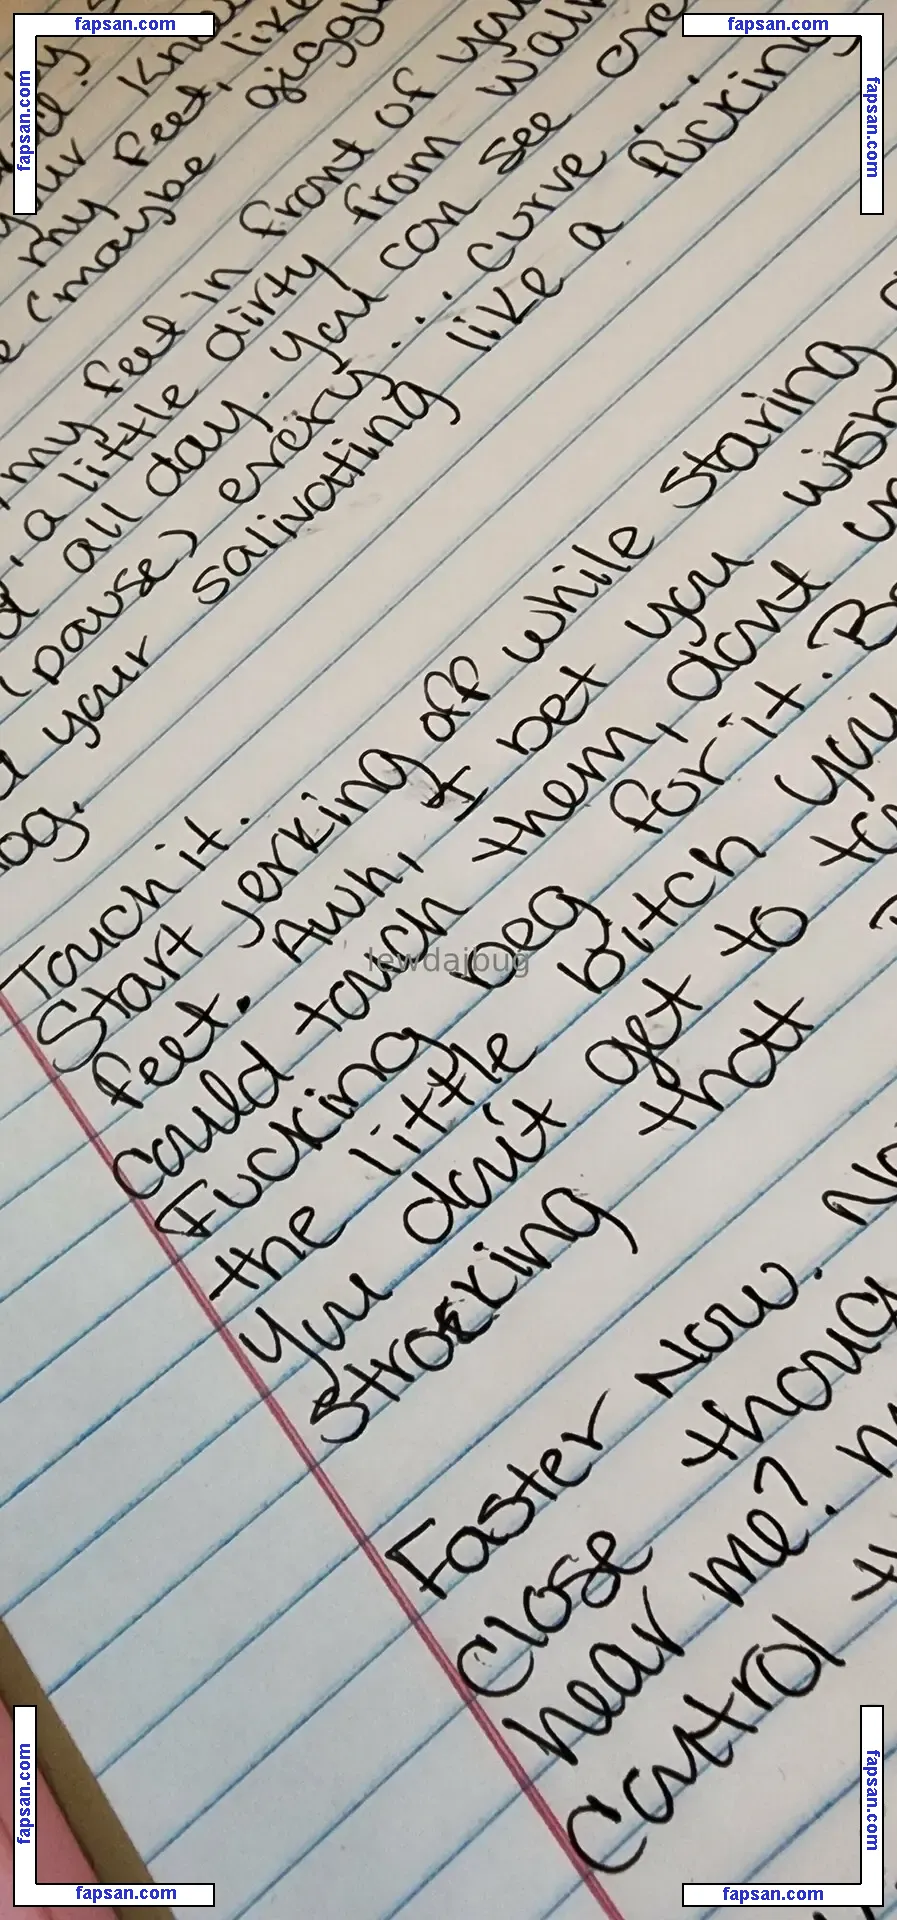 fapsan.com
fapsan.com
fapsan.com
fapsan.com
your Kno
my feet, like
(maybe giggl
my feet in front of you
, a little dirty from wal
all day. You can see
(pause) every ... curve ...
your salivating like a fucking
og.
Touch it.
Start jerking off while staring
feet. Awh, I bet you wish
could touch them, dont
Fucking beg for it. B
the little bitch you
You don't get to to
strocking that
lewdajbug
Faster Now. No
Close thoug
hear me?
Control
fapsan.com
fapsan.com
fapsan.com
fapsan.com